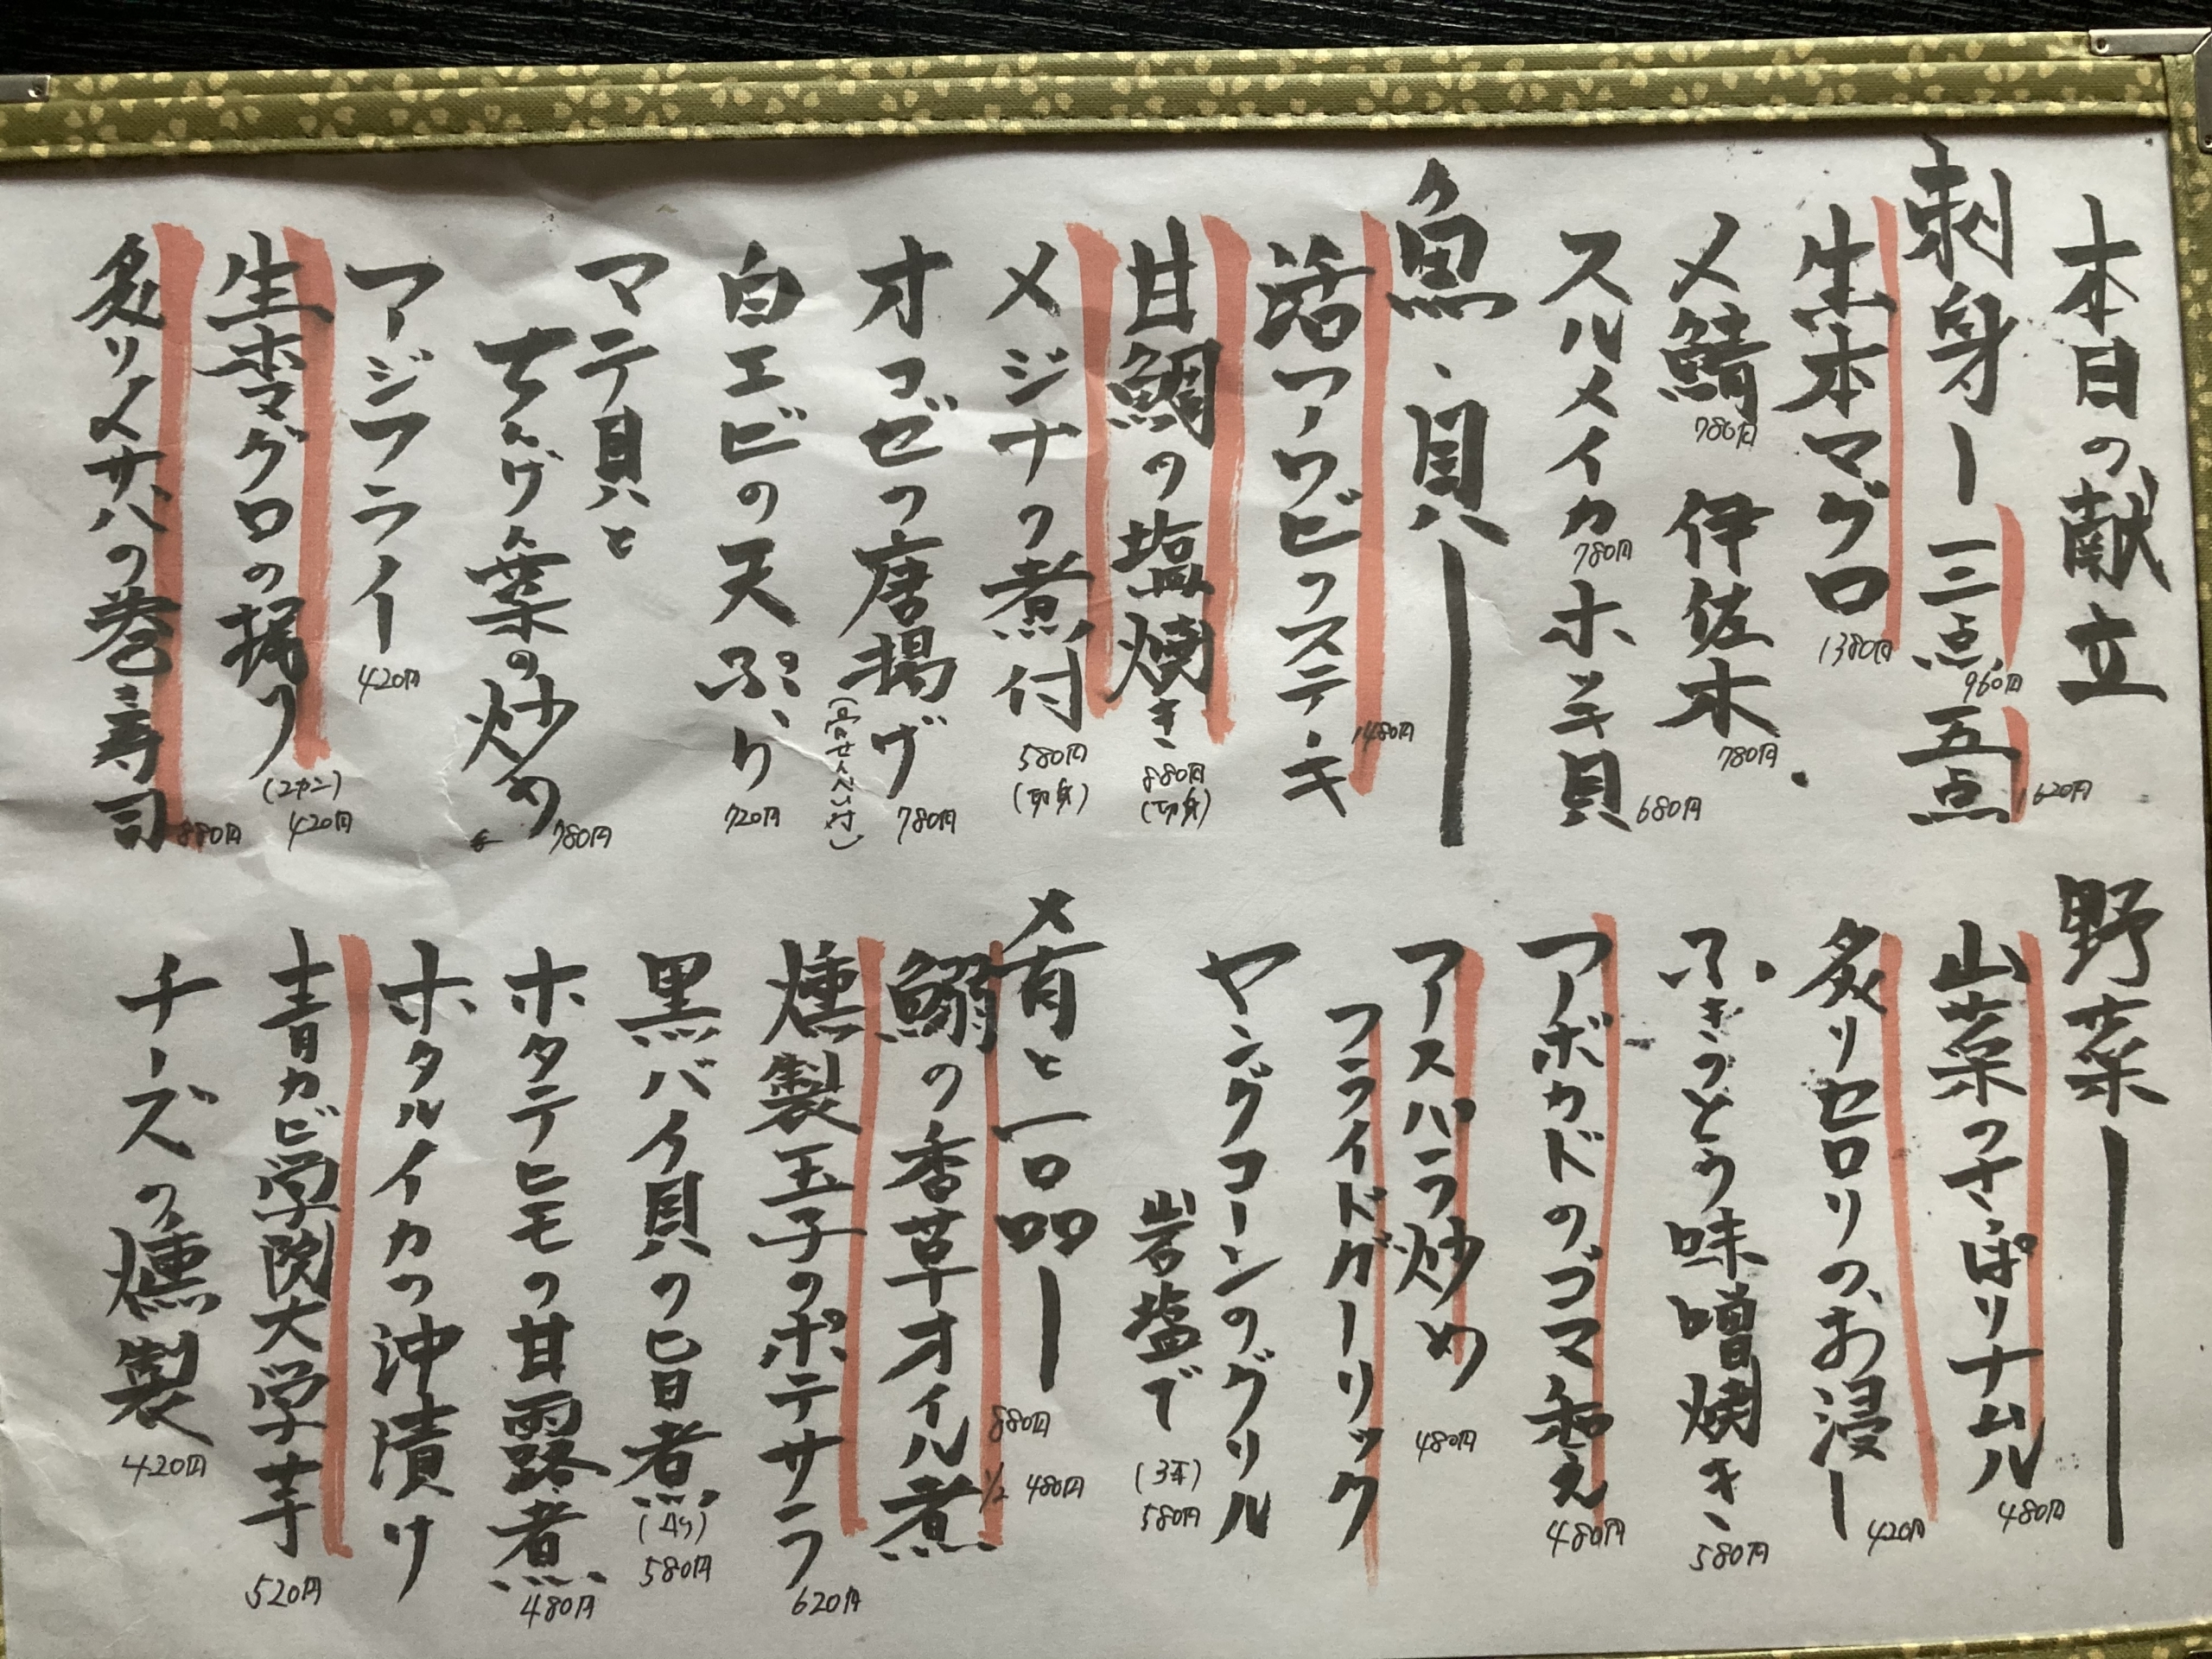 本日の献立
刺身ー三点 960円 五点 1620円
生本マグロ 1380円
〆鯖 780円 伊佐木 780円
スルメイカ 780円 ホッキ貝 680円
魚・貝ー
活アワビのステーキ 1480円
甘鯛の塩焼き 880円 (切身)
メジナの煮付 580円 (切身)
オコゼの唐揚げ 780円
(骨せんべい付)
白エビの天ぷら 720円
マテ貝と
ちんげん菜の炒め 780円
アジフライ 420円
生本マグロの握り (2カン) 420円
炙り〆サバの巻寿司 880円
野菜ー
山菜のさっぱりナムル 480円
炙りセロリの、お浸し 420円
ふきのとう味噌焼き 580円
アボカドのゴマ和え 480円
アスパラ炒め 480円
フライドガーリック
ヤングコーンのグリル
岩塩で (3本) 580円
肴と一品ー
鰯の香草オイル煮 880円 1/2 480円
燻製玉子のポテサラ 620円
黒バイ貝の旨煮 (4ケ) 580円
ホタテヒモの甘露煮 480円
ホタルイカの沖漬け
青カビ学院大学芋 520円
チーズの燻製 420円